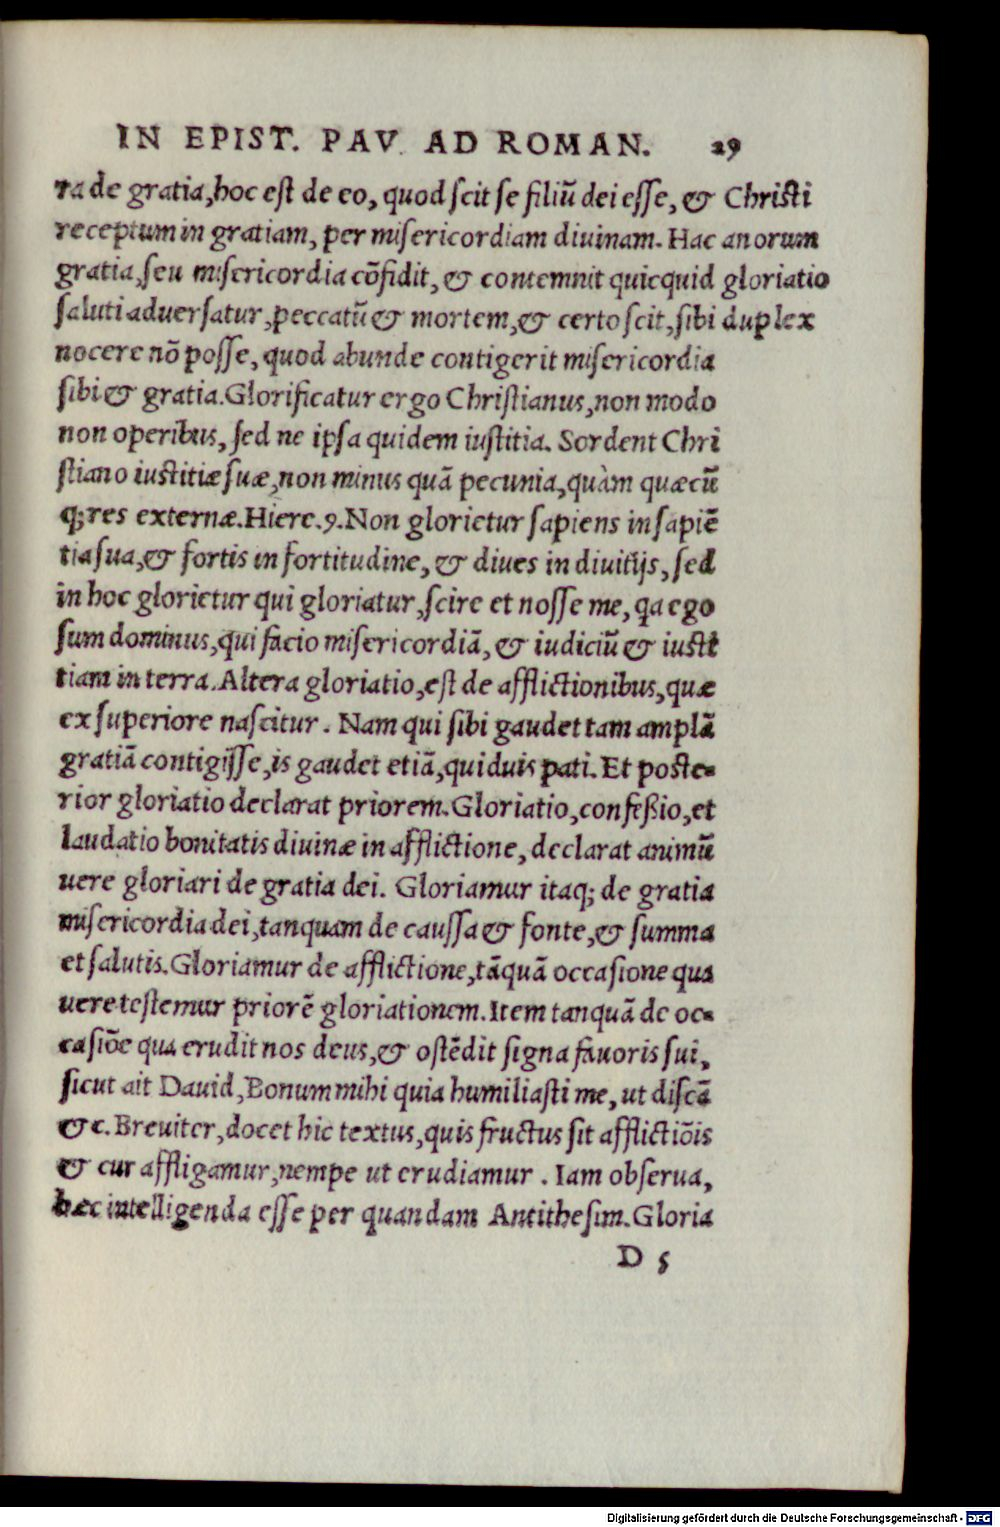 IN EPIST. PAV. AD ROMAN. 29
ra de gratia, hoc est de eo, quod scit se filiū dei esse, & Christi
receptum in gratiam, per misericordiam diuinam. Hac anorum
gratia, seu misericordia cōfidit, & contemnit quicquid gloriatio
saluti aduersatur, peccatū & mortem, & certo scit, sibi duplex
nocere nō posse, quod abunde contigerit misericordia
sibi & gratia. Glorificatur ergo Christianus, non modo
non operibus, sed ne ipsa quidem iustitia. Sordent Chri
stiano iustitiæ suæ, non minus quā pecunia, quàm quæcū
q; res externæ. Hiere. 9. Non glorietur sapiens in sapiē
tia sua, & fortis in fortitudine, & diues in diuitijs, sed
in hoc glorietur qui gloriatur, scire et nosse me, qa ego
sum dominus, qui facio misericordiā, & iudiciū & iusti
tiam in terra. Altera gloriatio, est de afflictionibus, quæ
ex superiore nascitur. Nam qui sibi gaudet tam amplā
gratiā contigisse, is gaudet etiā, quiduis pati. Et poste-
rior gloriatio declarat priorem. Gloriatio, confeßio, et
laudatio bonitatis diuinæ in afflictione, declarat animū
uere gloriari de gratia dei. Gloriamur itaq; de gratia
misericordia dei, tanquam de caussa & fonte, & summa
et salutis. Gloriamur de afflictione, tāquā occasione qua
uere testemur priorē gloriationem. Item tanquā de oc-
casiōe qua erudit nos deus, & ostēdit signa fauoris sui,
sicut ait Dauid, Bonum mihi quia humiliasti me, ut discā
&c. Breuiter, docet hic textus, quis fructus sit afflictiōis
& cur affligamur, nempe ut erudiamur. Iam obserua,
hæc intelligenda esse per quandam Antithesim. Gloria
D 5
Digitalisierung gefördert durch die Deutsche Forschungsgemeinschaft - DFG